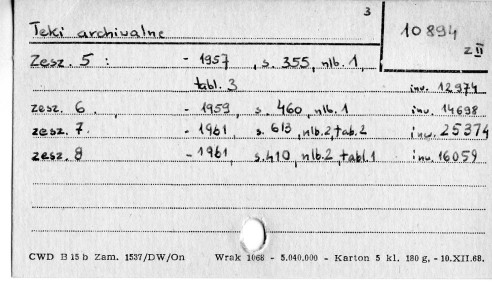 3
Teki archiwalne
10894
z II
Zesz. 5 : - 1957, s. 355, nlb. 1,
tabl. 3 inw. 12974
zesz. 6. , - 1959, s. 460, nlb. 1 inw. 14698
zesz. 7. - 1961 s. 613, nlb. 2, tab. 2 inw. 25374
zesz. 8 - 1961, s. 410, nlb. 2, tabl. 1 inw. 16059
CWD B 15 b Zam. 1537/DW/On Wrak 1068 - 5.040.000 - Karton 5 kl. 180 g. - 10.XII.68.